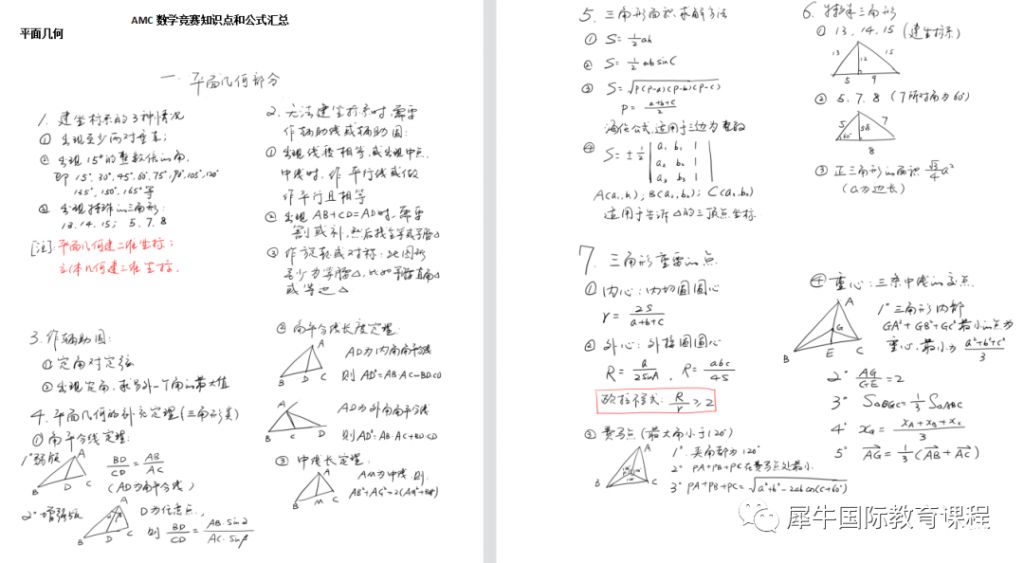 AMC 数学竞赛知识点和公式汇总
平面几何
一 平面几何部分
1. 建坐标系的3种情况
① 出现至少两对垂直;
② 出现15°的整数倍的角,
即 15°, 30°, 45°, 60°, 75°, 90°, 105°, 120°
135°, 150°, 165° 等
③ 出现特殊的三角形:
13. 14. 15; 5. 7. 8
[注]: 平面几何建二维坐标;
立体几何建三维坐标.
2. 无法建坐标系时, 需要
作辅助线或辅助圆:
① 出现线段相等, 或出现中点,
中线时, 作平行线或做
作平行且相等
② 出现 AB+CD=AD时, 需要
割或补, 然后找全等或等腰△
③ 作旋转或对称: 此图形
至少为等腰△, 比如等腰直角△
或等边△
3. 作辅助圆:
① 定角对定弦
② 出现定角, 求另外一个角的最大值
4. 平面几何的补充定理(三角形类)
① 角平分线定理:
1° 弱版
A
B D C
BD/CD = AB/AC
(AD为角平分线)
2° 增强版
A
B D C
D为任意点,
则 BD/CD = AB·sinα/AC·sinβ
② 角平分线长度定理:
A
B D C
AD为内角角平分线
则 AD²=AB·AC-BD·CD
A
B C D
AD为外角角平分线
则AD²=-AB·AC+BD·CD
③ 中线长定理:
A
B M C
AM为中线 则
AB²+AC²=2(AM²+BM²)
5. 三角形面积求解方法
① S=½ah
② S=½absinC
③ S=√P(P-a)(P-b)(P-c)
P= a+b+c/2
海伦公式, 适用于三边为整数
④ S=±½
a₁ b₁ 1
a₂ b₂ 1
a₃ b₃ 1
A(a₁,b₁); B(a₂,b₂); C(a₃,b₃)
适用于告诉△的三顶点坐标.
6. 特殊三角形
① 13. 14. 15 (建坐标系)
13 12 15
5 9
② 5. 7. 8 (7所对角为60°)
5 7
60°
8
③ 正三角形的面积 √3/4 a²
(a为边长)
7. 三角形重要的点
① 内心: 内切圆圆心
r= 2S/a+b+c
② 外心: 外接圆圆心
R= a/2sinA, R= abc/4S
欧拉不等式: R/r ≥ 2
③ 费马点 (最大角小于120°)
A
B C
1° 夹角都为120°
2° PA+PB+PC在费马点处最小
3° PA+PB+PC=√a²+b²-2abcos(C+60°)
④ 重心: 三条中线的交点
A
G
B E C
1° 三角形内部
GA²+GB²+GC²最小的点为
重心, 最小为 a²+b²+c²/3
2° AG/GE=2
3° S△BGC=⅓S△ABC
4° xG= xA+xB+xC/3
5° AG=⅓(AB+AC)
犀牛国际教育课程